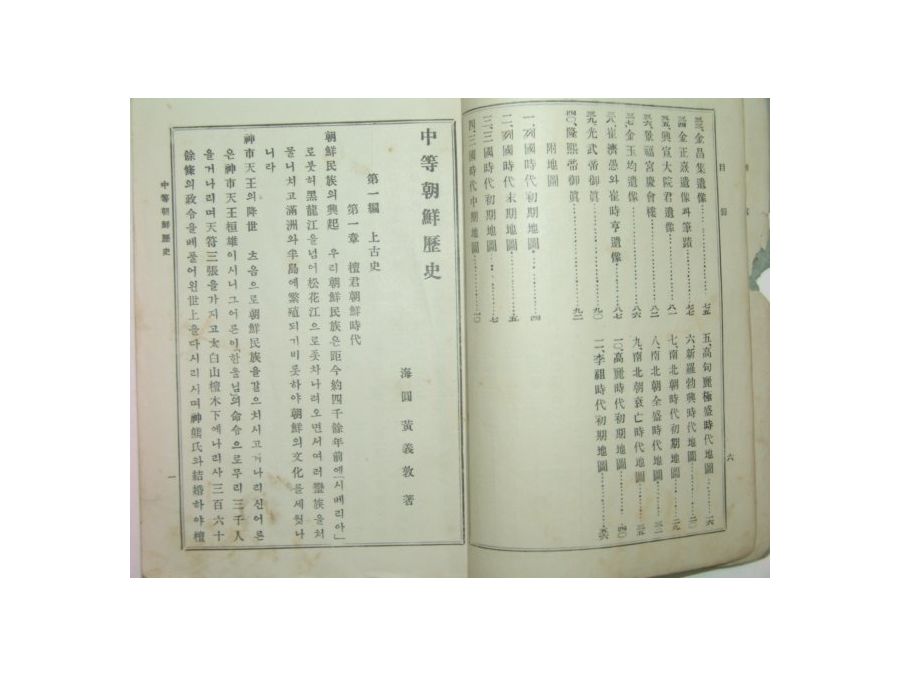 三三、金昌集遺像…………七五
三四、金正喜遺像과筆蹟…………七七
三五、興宣大院君遺像…………八一
三六、景福宮慶會樓…………八二
三七、金玉均遺像…………八六
三八、崔濟愚와崔時亨遺像…………八七
三九、光武帝御眞…………九〇
四〇、隆熙帝御眞…………九二
附地圖
一、列國時代初期地圖…………四
二、列國時代末期地圖…………五
三、三國時代初期地圖…………七
四、三國時代中期地圖…………一〇
五、高句麗極盛時代地圖…………一六
六、新羅勃興時代地圖…………二〇
七、南北朝時代初期地圖…………二九
八、南北朝全盛時代地圖…………三二
九、南北朝衰亡時代地圖…………三五
一〇、高麗時代初期地圖…………四〇
一一、李祖時代初期地圖
目
六
中等朝鮮歷史
海圓 黃義敦 著
第一編 上古史
第一章 檀君朝鮮時代
朝鮮民族의興起 우리朝鮮民族은距今約四千餘年前에「시베리아」
로붓허黑龍江을넘어松花江으로좃차나려오면서여러蠻族을처
물니치고滿洲와半島에繁殖되기비롯하야朝鮮의文化를세웟나
니라
神市天王의降世 츠음으로朝鮮民族을갈으치시고거나리신어른
은神市天王桓雄이시니그어른이한울님의命令으로무리三千人
을거나리며天符三張을가지고太白山檀木下에나리사三百六十
餘條의政令을베풀어원世上을다시리시며神熊氏와結婚하야檀
中等朝鮮歷史
一